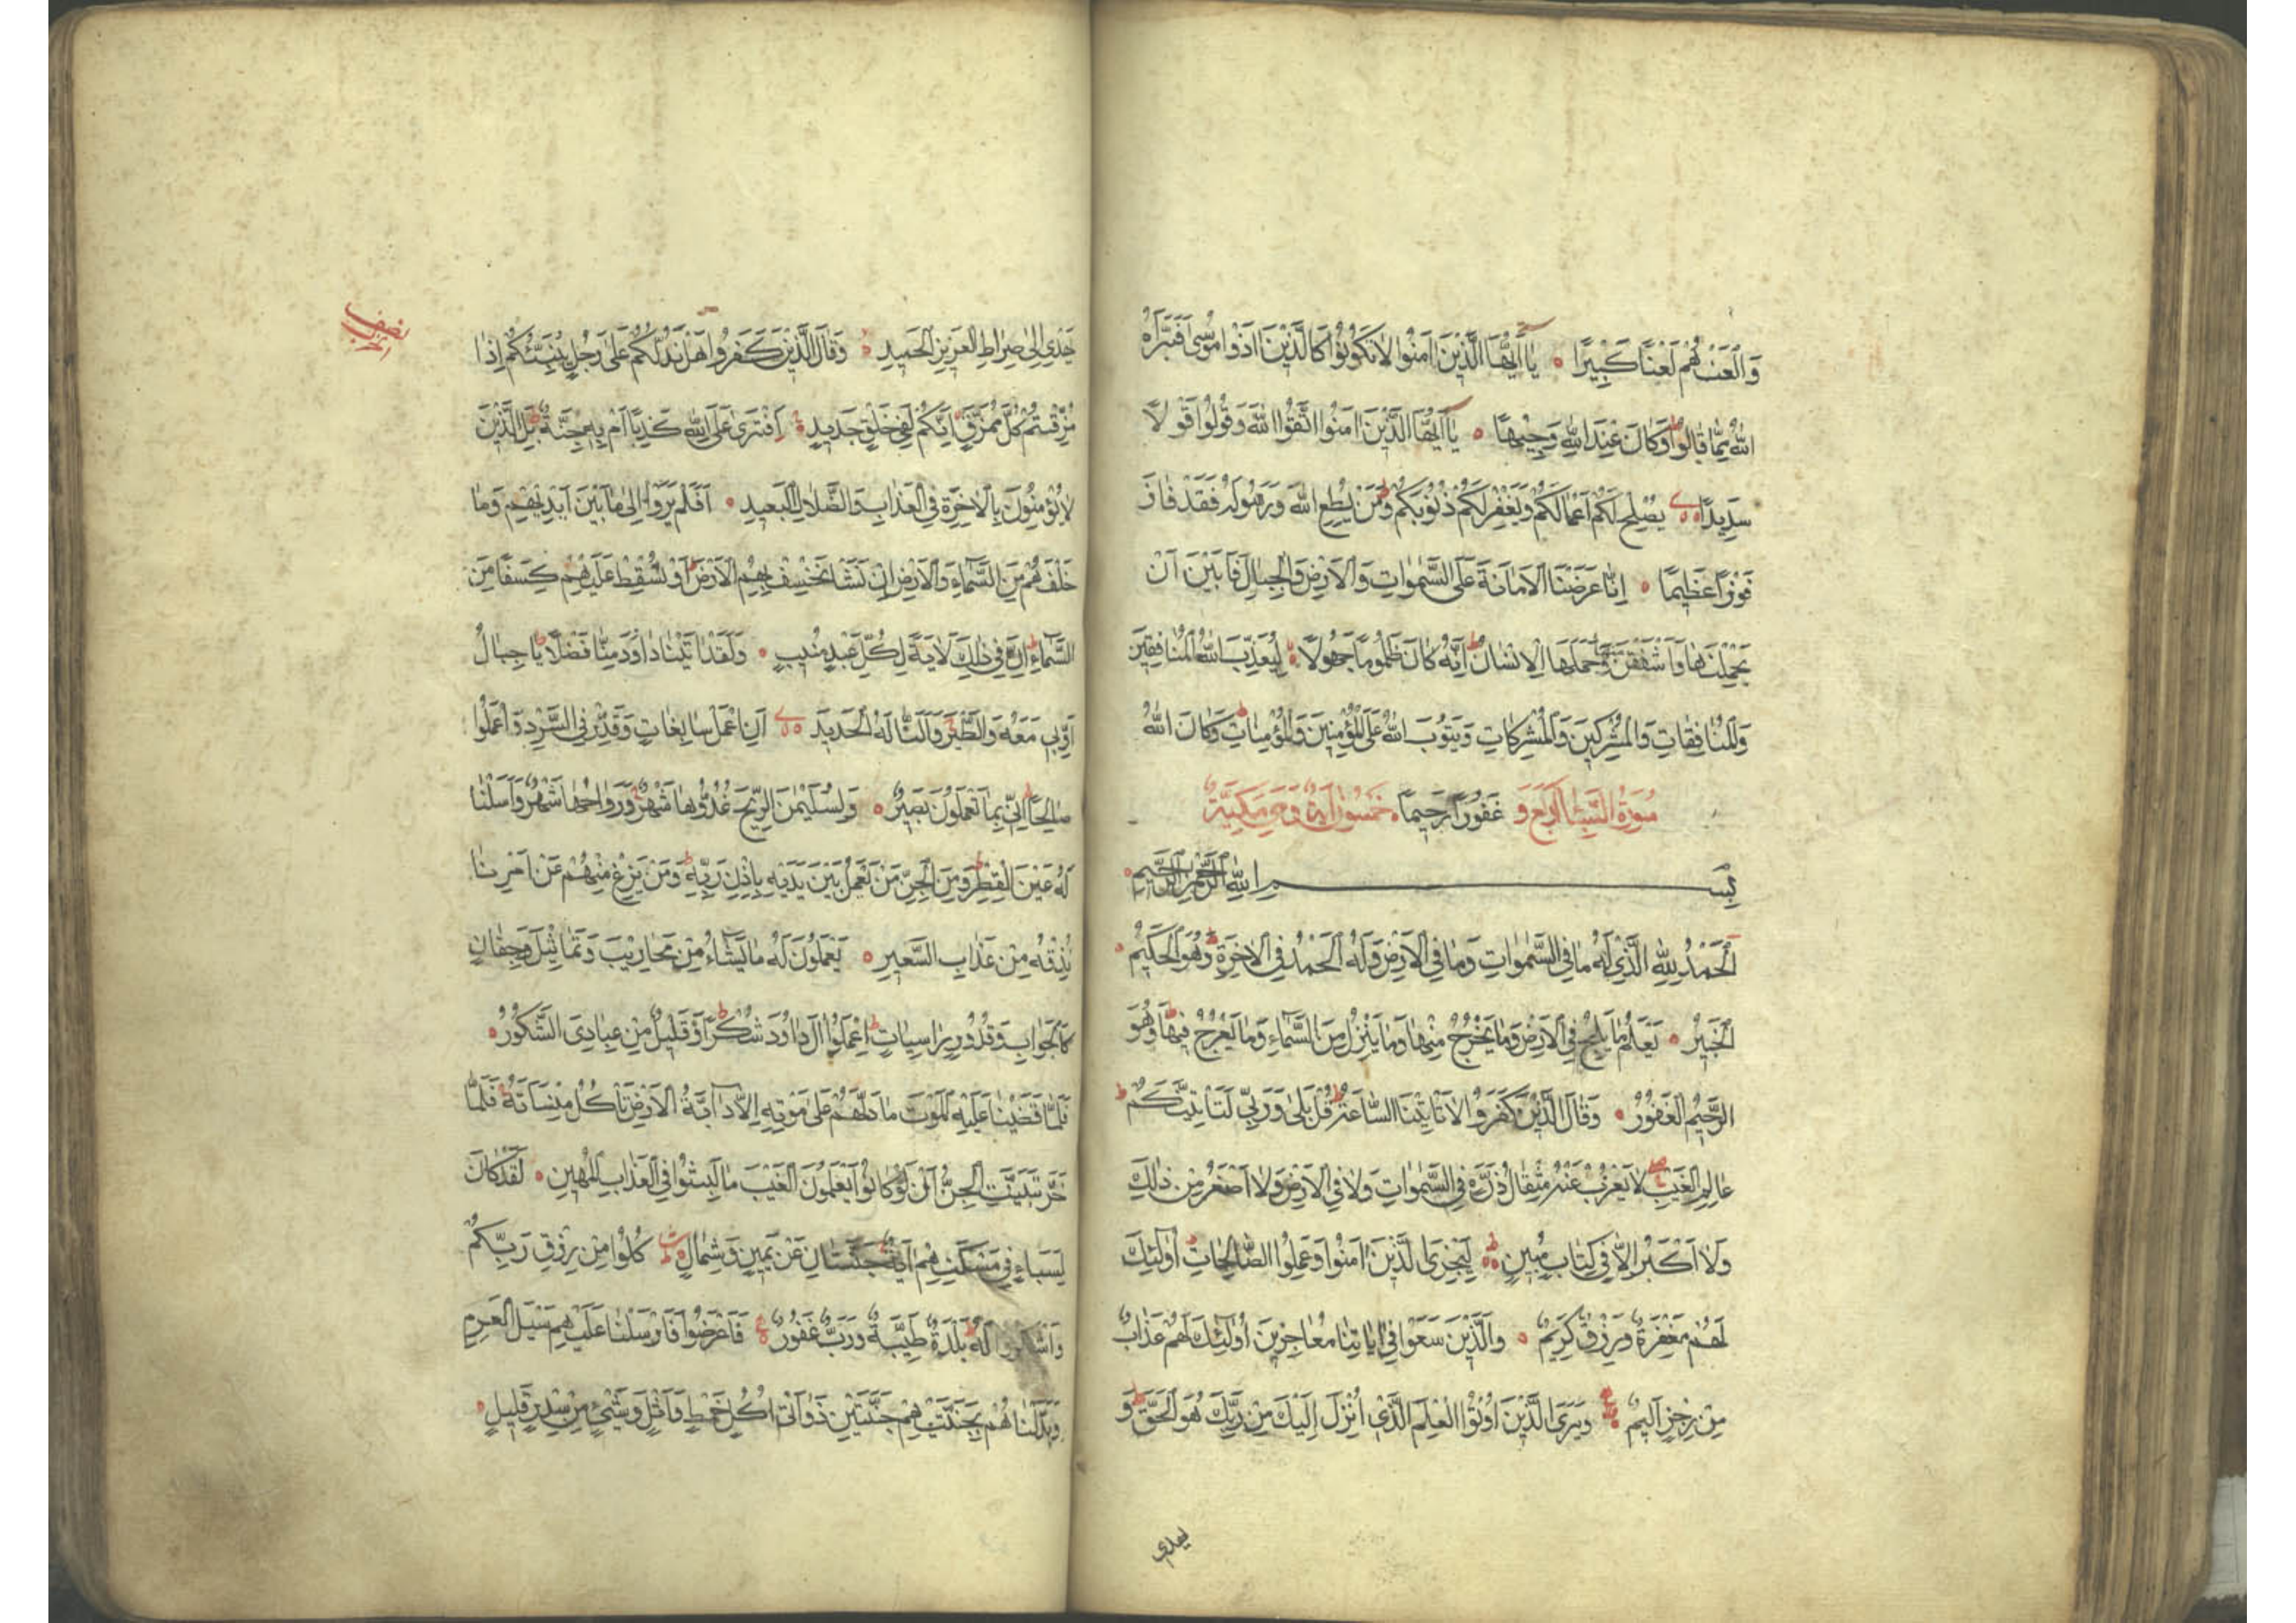 وَالْعَنْهُمْ لَعْنًا كَبِيرًا ۝ يَا أَيُّهَا الَّذِينَ آمَنُوا لَا تَكُونُوا كَالَّذِينَ آذَوْا مُوسَى فَبَرَّأَهُ
اللَّهُ مِمَّا قَالُوا ط وَكَانَ عِنْدَ اللَّهِ وَجِيهًا ۝ يَا أَيُّهَا الَّذِينَ آمَنُوا اتَّقُوا اللَّهَ وَقُولُوا قَوْلًا
سَدِيدًا ۝ يُصْلِحْ لَكُمْ أَعْمَالَكُمْ وَيَغْفِرْ لَكُمْ ذُنُوبَكُمْ ط وَمَنْ يُطِعِ اللَّهَ وَرَسُولَهُ فَقَدْ فَازَ
فَوْزًا عَظِيمًا ۝ إِنَّا عَرَضْنَا الْأَمَانَةَ عَلَى السَّمٰوَاتِ وَالْأَرْضِ وَالْجِبَالِ فَأَبَيْنَ أَنْ
يَحْمِلْنَهَا وَأَشْفَقْنَ مِنْهَا وَحَمَلَهَا الْإِنْسَانُ ط إِنَّهُ كَانَ ظَلُومًا جَهُولًا ۝ لِيُعَذِّبَ اللَّهُ الْمُنَافِقِينَ
وَالْمُنَافِقَاتِ وَالْمُشْرِكِينَ وَالْمُشْرِكَاتِ وَيَتُوبَ اللَّهُ عَلَى الْمُؤْمِنِينَ وَالْمُؤْمِنَاتِ ط وَكَانَ اللَّهُ
سُورَةُ السَّبَأِ أَرْبَعٌ وَ غَفُورًا رَحِيمًا ۝ خَمْسُونَ آيَةً وَهِيَ مَكِّيَّةٌ
بِسْمِ اللَّهِ الرَّحْمٰنِ الرَّحِيمِ ۝
اَلْحَمْدُ لِلَّهِ الَّذِي لَهُ مَا فِي السَّمٰوَاتِ وَمَا فِي الْأَرْضِ وَلَهُ الْحَمْدُ فِي الْآخِرَةِ ط وَهُوَ الْحَكِيمُ
الْخَبِيرُ ۝ يَعْلَمُ مَا يَلِجُ فِي الْأَرْضِ وَمَا يَخْرُجُ مِنْهَا وَمَا يَنْزِلُ مِنَ السَّمَاءِ وَمَا يَعْرُجُ فِيهَا ط وَهُوَ
الرَّحِيمُ الْغَفُورُ ۝ وَقَالَ الَّذِينَ كَفَرُوا لَا تَأْتِينَا السَّاعَةُ ط قُلْ بَلَى وَرَبِّي لَتَأْتِيَنَّكُمْ ط
عَالِمِ الْغَيْبِ لَا يَعْزُبُ عَنْهُ مِثْقَالُ ذَرَّةٍ فِي السَّمٰوَاتِ وَلَا فِي الْأَرْضِ وَلَا أَصْغَرُ مِنْ ذٰلِكَ
وَلَا أَكْبَرُ إِلَّا فِي كِتَابٍ مُبِينٍ ۝ لِيَجْزِيَ الَّذِينَ آمَنُوا وَعَمِلُوا الصَّالِحَاتِ ط أُولٰئِكَ
لَهُمْ مَغْفِرَةٌ وَرِزْقٌ كَرِيمٌ ۝ وَالَّذِينَ سَعَوْا فِي آيَاتِنَا مُعَاجِزِينَ أُولٰئِكَ لَهُمْ عَذَابٌ
مِنْ رِجْزٍ أَلِيمٌ ۝ وَيَرَى الَّذِينَ أُوتُوا الْعِلْمَ الَّذِي أُنْزِلَ إِلَيْكَ مِنْ رَبِّكَ هُوَ الْحَقَّ ط وَ
يهدي
نصف الحزب
يَهْدِي إِلَى صِرَاطِ الْعَزِيزِ الْحَمِيدِ ۝ وَقَالَ الَّذِينَ كَفَرُوا هَلْ نَدُلُّكُمْ عَلَى رَجُلٍ يُنَبِّئُكُمْ إِذَا
مُزِّقْتُمْ كُلَّ مُمَزَّقٍ إِنَّكُمْ لَفِي خَلْقٍ جَدِيدٍ ۝ أَفْتَرَى عَلَى اللَّهِ كَذِبًا أَمْ بِهِ جِنَّةٌ ط بَلِ الَّذِينَ
لَا يُؤْمِنُونَ بِالْآخِرَةِ فِي الْعَذَابِ وَالضَّلَالِ الْبَعِيدِ ۝ أَفَلَمْ يَرَوْا إِلَى مَا بَيْنَ أَيْدِيهِمْ وَمَا
خَلْفَهُمْ مِنَ السَّمَاءِ وَالْأَرْضِ إِنْ نَشَأْ نَخْسِفْ بِهِمُ الْأَرْضَ أَوْ نُسْقِطْ عَلَيْهِمْ كِسَفًا مِنَ
السَّمَاءِ ط إِنَّ فِي ذٰلِكَ لَآيَةً لِكُلِّ عَبْدٍ مُنِيبٍ ۝ وَلَقَدْ آتَيْنَا دَاوُدَ مِنَّا فَضْلًا ط يَا جِبَالُ
أَوِّبِي مَعَهُ وَالطَّيْرَ وَأَلَنَّا لَهُ الْحَدِيدَ ۝ أَنِ اعْمَلْ سَابِغَاتٍ وَقَدِّرْ فِي السَّرْدِ وَاعْمَلُوا
صَالِحًا ط إِنِّي بِمَا تَعْمَلُونَ بَصِيرٌ ۝ وَلِسُلَيْمٰنَ الرِّيحَ غُدُوُّهَا شَهْرٌ وَرَوَاحُهَا شَهْرٌ وَأَسَلْنَا
لَهُ عَيْنَ الْقِطْرِ ط وَمِنَ الْجِنِّ مَنْ يَعْمَلُ بَيْنَ يَدَيْهِ بِإِذْنِ رَبِّهِ ط وَمَنْ يَزِغْ مِنْهُمْ عَنْ أَمْرِنَا
نُذِقْهُ مِنْ عَذَابِ السَّعِيرِ ۝ يَعْمَلُونَ لَهُ مَا يَشَاءُ مِنْ مَحَارِيبَ وَتَمَاثِيلَ وَجِفَانٍ
كَالْجَوَابِ وَقُدُورٍ رَاسِيَاتٍ ط اِعْمَلُوا آلَ دَاوُدَ شُكْرًا ط وَقَلِيلٌ مِنْ عِبَادِيَ الشَّكُورُ ۝
فَلَمَّا قَضَيْنَا عَلَيْهِ الْمَوْتَ مَا دَلَّهُمْ عَلَى مَوْتِهِ إِلَّا دَابَّةُ الْأَرْضِ تَأْكُلُ مِنْسَأَتَهُ فَلَمَّا
خَرَّ تَبَيَّنَتِ الْجِنُّ أَنْ لَوْ كَانُوا يَعْلَمُونَ الْغَيْبَ مَا لَبِثُوا فِي الْعَذَابِ الْمُهِينِ ۝ لَقَدْ كَانَ
لِسَبَإٍ فِي مَسْكَنِهِمْ آيَةٌ جَنَّتَانِ عَنْ يَمِينٍ وَشِمَالٍ ۝ كُلُوا مِنْ رِزْقِ رَبِّكُمْ
وَاشْكُرُوا لَهُ ط بَلْدَةٌ طَيِّبَةٌ وَرَبٌّ غَفُورٌ ۝ فَأَعْرَضُوا فَأَرْسَلْنَا عَلَيْهِمْ سَيْلَ الْعَرِمِ
وَبَدَّلْنَاهُمْ بِجَنَّتَيْهِمْ جَنَّتَيْنِ ذَوَاتَيْ أُكُلٍ خَمْطٍ وَأَثْلٍ وَشَيْءٍ مِنْ سِدْرٍ قَلِيلٍ ۝